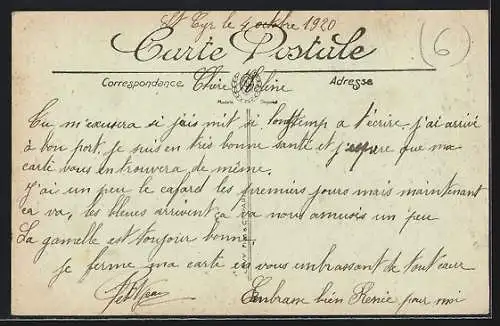 St Cyr le 4 octobre 1920
(6)
Carte Postale
Correspondance
Adresse
Chère Céline
Modèle Déposé
Tu m'excusera si j'ais mit si longtemp a t'écrire. j'ai arrivé
à bon port. je suis en très bonne santé et j'espère que ma
carte vous en trouvera de même.
J'ai un peu le cafard les premiers jours mais maintenant
ça va, les bleues arrivent ça va nous amusés un peu
La gamelle est toujour bonne.
je ferme ma carte en vous embrassant de tout cœur
Embrasse bien Renée pour moi